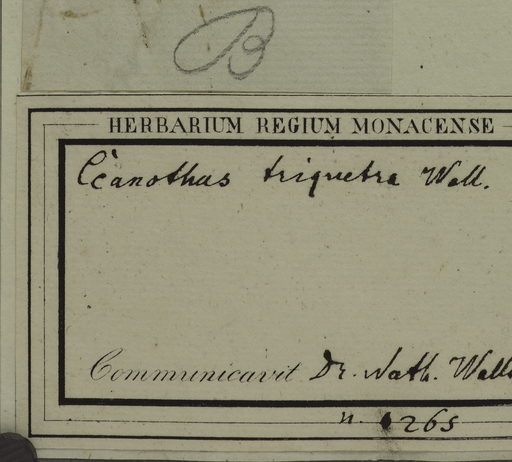 B
HERBARIUM REGIUM MONACENSE
Ceanothus triquetra Wall.
Communicavit Dr. Nath. Wall
n. 4265